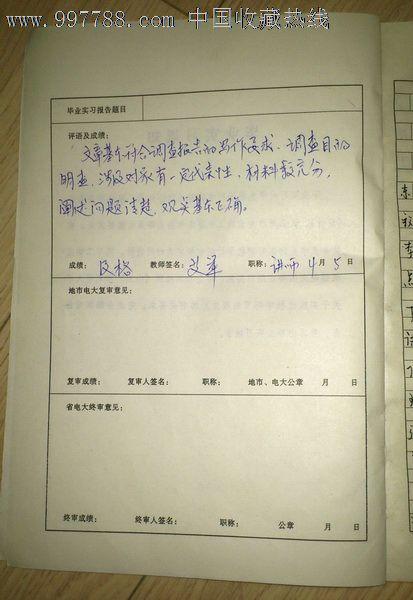 www.997788.com 中国收藏热线
毕业实习报告题目
评语及成绩：
文章基本符合调查报告的写作要求，调查目的
明查，涉及对象有一定代表性，材料较充分，
阐述问题清楚，观点基本正确。
成绩： 及格 教师签名： 职称：讲师 4月5日
地市电大复审意见：
复审成绩： 复审人签名： 职称： 地市、电大公章 月 日
省电大终审意见：
终审成绩： 终审人签名： 职称： 公章 月 日